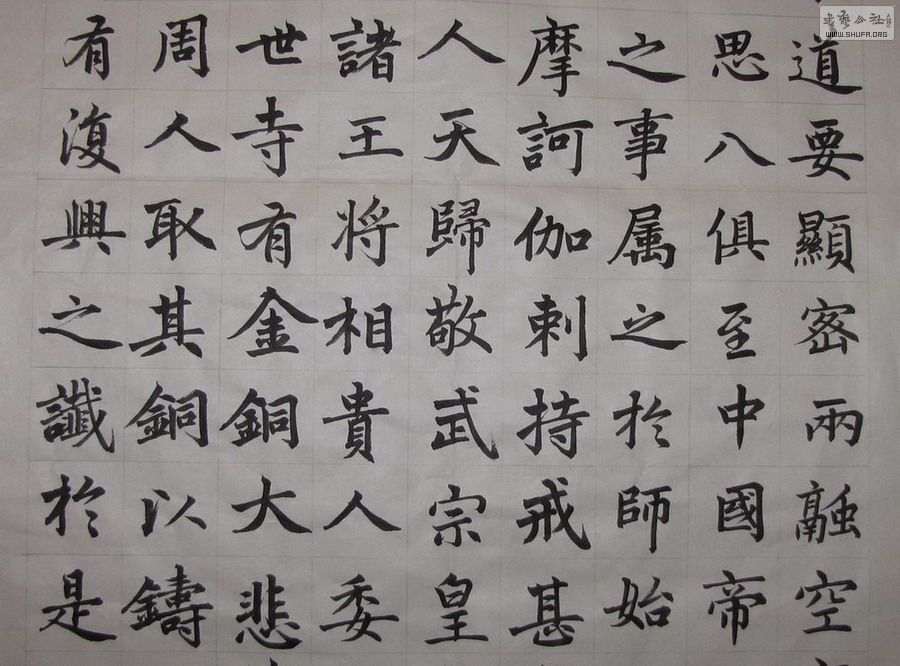 道要顯密兩融空
思八俱至中國帝
之事属之於師始
摩訶伽剌持戒甚
人天歸敬武宗皇
諸王将相貴人委
世寺有金銅大悲
周人取其銅以鑄
有復興之讖於是
書藝公社
WWW.SHUFA.ORG